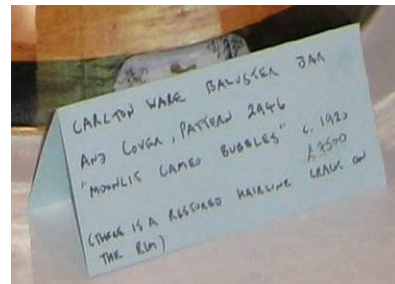 CARLTON WARE BALUSTER JAR
AND COVER, PATTERN 2946
"MOONLIT CAMEO BUBBLES" c. 1920
£7500
(THERE IS A RESTORED HAIRLINE CRACK ON
THE RIM)